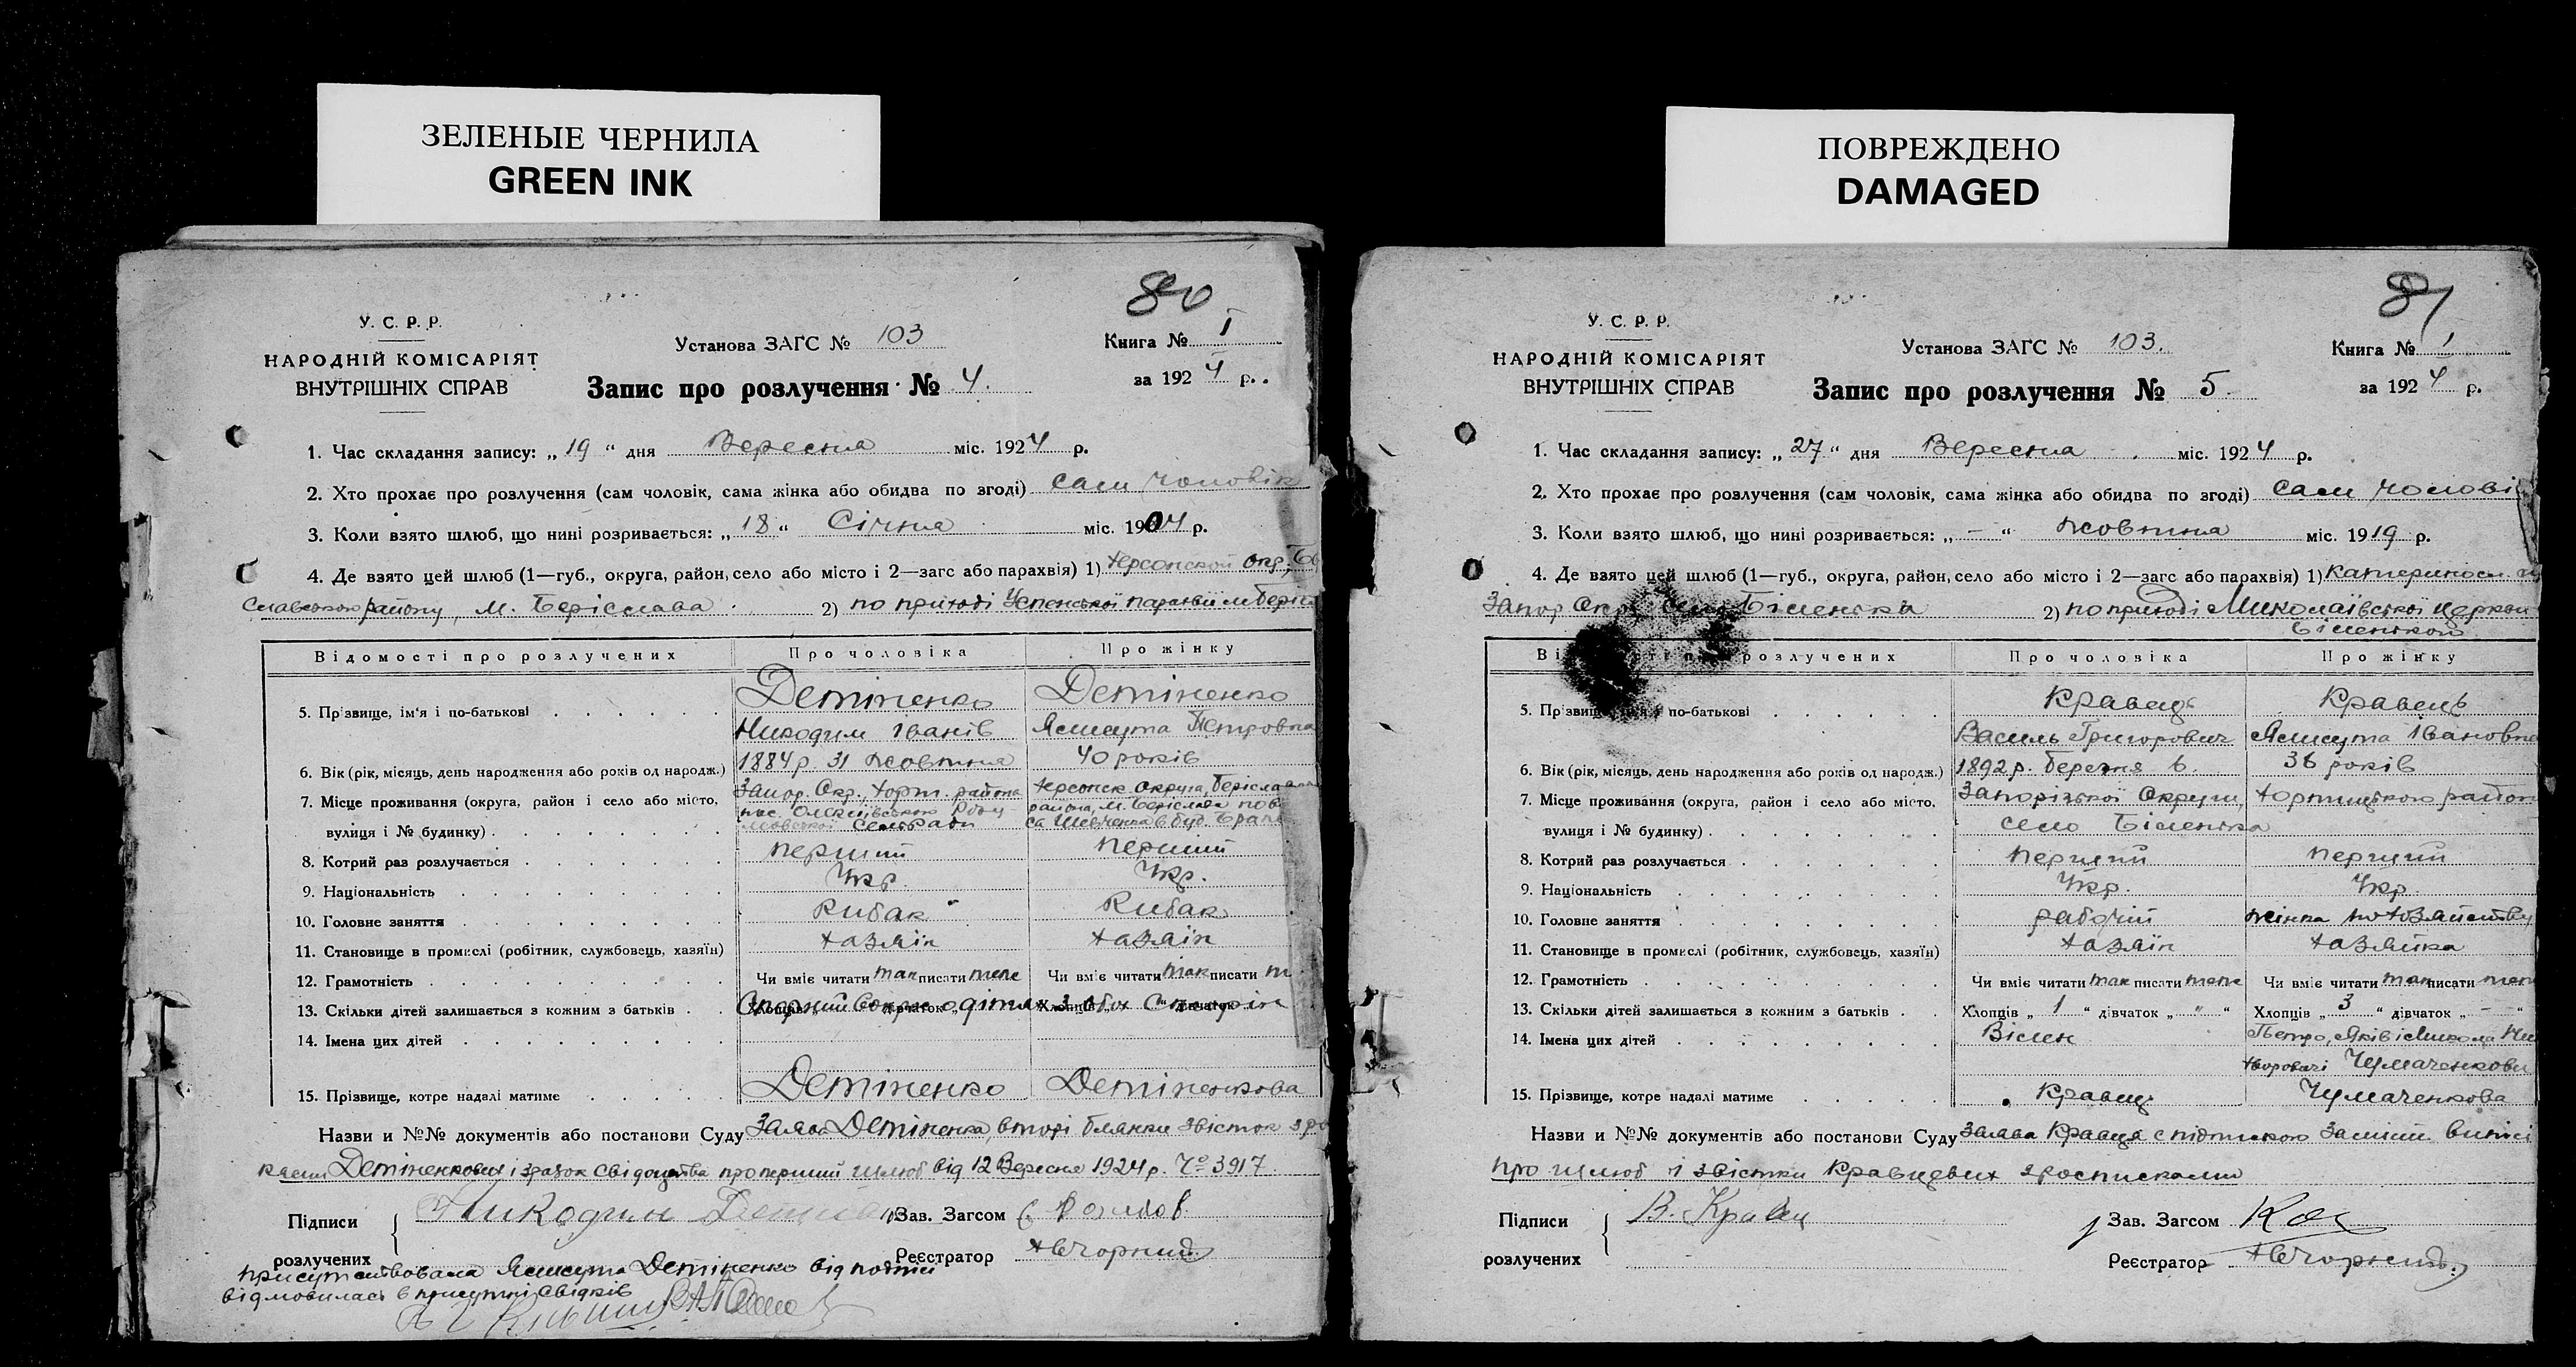 ЗЕЛЕНЫЕ ЧЕРНИЛА
GREEN INK
80
У. С. Р. Р.
НАРОДНІЙ КОМІСАРІЯТ
ВНУТРІШНІХ СПРАВ
Установа ЗАГС № 103
Книга № I
Запис про розлучення № 4.
за 1924 р.
1. Час складання запису: „19“ дня Вересня міс. 1924 р.
2. Хто прохає про розлучення (сам чоловік, сама жінка або обидва по згоді) сам чоловік
3. Коли взято шлюб, що нині розривається: „18“ Січня міс. 1904 р.
4. Де взято цей шлюб (1—губ., округа, район, село або місто і 2—загс або парахвія) 1) Херсонской окр.
славського району, м. Беріслава 2) по приході Успенської парахвії
Відомості про розлучених Про чоловіка Про жінку
5. Прізвище, ім'я і по-батькові Детіненко Детіненко
Никодим Іванів Ялисута Петровна
6. Вік (рік, місяць, день народження або років од народж.) 1884 р. 31 жовтня 40 років
7. Місце проживання (округа, район і село або місто, Запор. Окр., Хорт. района Херсонск. Округа,
вулиця і № будинку) сельради района, м. Беріслава
8. Котрий раз розлучається перший перший
9. Національність Укр. Укр.
10. Головне заняття Рибак Рибак
11. Становище в промислі (робітник, службовець, хазяїн) хазяїн хазяїн
12. Грамотність Чи вміє читати так писати теж Чи вміє читати так писати
13. Скільки дітей залишається з кожним з батьків
14. Імена цих дітей
15. Прізвище, котре надалі матиме Детіненко Детіненкова
Назви и №№ документів або постанови Суду Заява Детіненка, вторі бланки звісток
Детіненкових і зразок свідоцтва про перший шлюб від 12 Вересня 1924 р. № 3917
Підписи
розлучених
Никодим
Зав. Загсом
Реєстратор
присутствовала Ялисута Детіненко від подпісі
відмовилась в присутні свідків
ПОВРЕЖДЕНО
DAMAGED
81
У. С. Р. Р.
НАРОДНІЙ КОМІСАРІЯТ
ВНУТРІШНІХ СПРАВ
Установа ЗАГС № 103.
Книга № 1
Запис про розлучення № 5.
за 1924 р.
1. Час складання запису: „27“ дня Вересня міс. 1924 р.
2. Хто прохає про розлучення (сам чоловік, сама жінка або обидва по згоді) сам чолові
3. Коли взято шлюб, що нині розривається: „—“ жовтня міс. 1919 р.
4. Де взято цей шлюб (1—губ., округа, район, село або місто і 2—загс або парахвія) 1) Катериносл.
Запор. Окр. село Біленька 2) по приході Миколаївської церкви
Біленької
Про чоловіка Про жінку
5. по-батькові Кравець Кравець
Василь Григорович Ялисута Івановна
6. Вік (рік, місяць, день народження або років од народж.) 1892 р. березня 6. 36 років
7. Місце проживання (округа, район і село або місто, Запорізької Округи, Хортицького район
вулиця і № будинку) село Біленька
8. Котрий раз розлучається перший перший
9. Національність Укр. Укр.
10. Головне заняття рабочій жінка по хозяйству
11. Становище в промислі (робітник, службовець, хазяїн) хазяїн хазяйка
12. Грамотність Чи вміє читати так писати теж Чи вміє читати так писати теж
13. Скільки дітей залишається з кожним з батьків Хлопців „1“ дівчаток „"“ Хлопців „3“ дівчаток „—“
14. Імена цих дітей Вілен Петро, Яків і Микола
Чумаченкови
15. Прізвище, котре надалі матиме Кравець Чумаченкова
Назви и №№ документів або постанови Суду Заява Кравця с підпискою замість виписі
про шлюб і звістки Кравцевих з росписками
Підписи
розлучених
В. Кравец
Зав. Загсом
Реєстратор